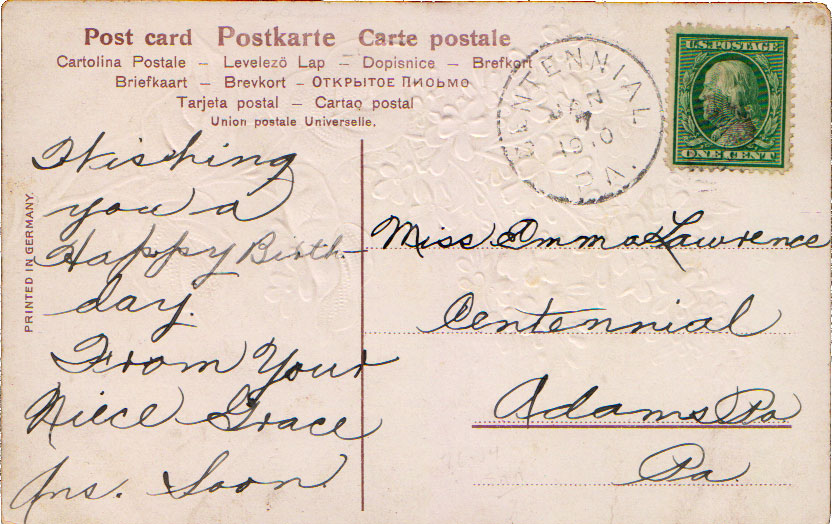 Post card Postkarte Carte postale
Cartolina Postale – Levelező Lap – Dopisnice – Brefkort
Briefkaart – Brevkort – ОТКРЫТОЕ ПИСЬМО
Tarjeta postal – Cartao postal
Union postale Universelle.
CENTENNIAL
JAN
7
1910
PA.
U.S. POSTAGE
ONE CENT
PRINTED IN GERMANY.
Wishing
you a
Happy Birth-
day.
From Your
Niece Grace
Ans. Soon.
Miss Emma Lawrence
Centennial
Adams Co
Pa.